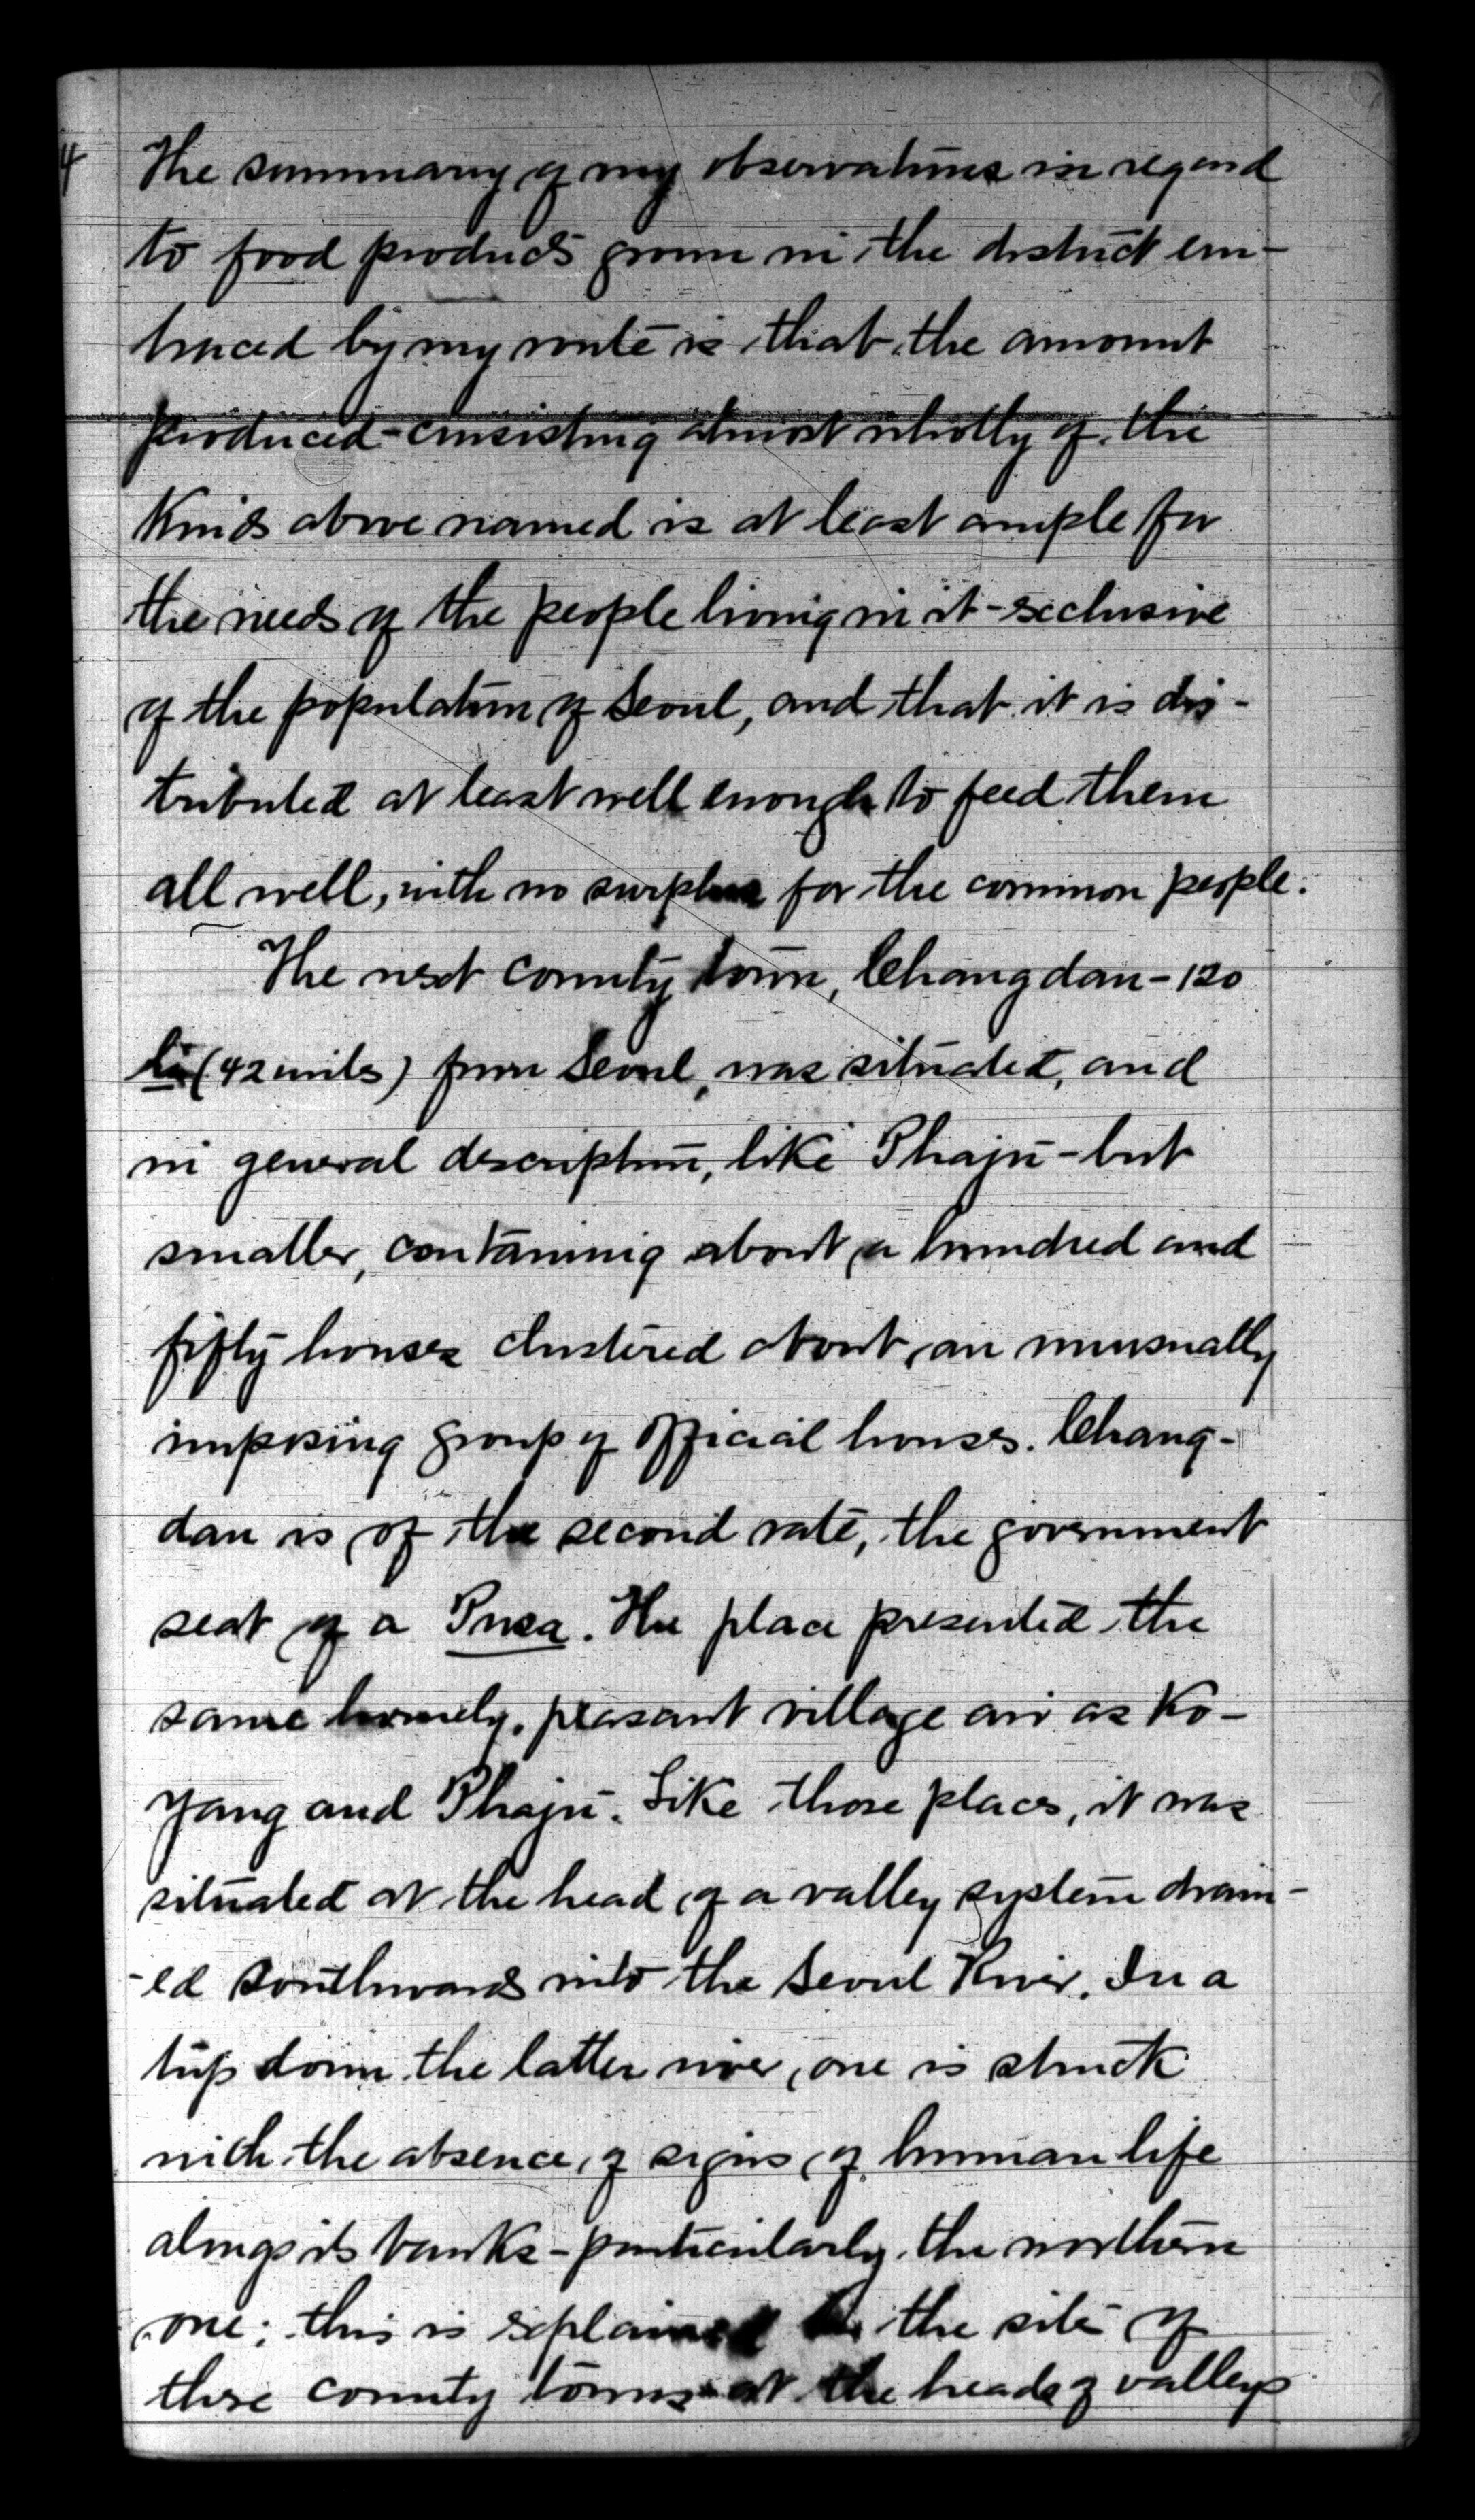 4
The summary of my observations in regard
to food products grown in the district em-
braced by my route is that the amount
produced - consisting almost wholly of the
kinds above named is at least ample for
the needs of the people living in it - exclusive
of the population of Seoul, and that it is dis-
tributed at least well enough to feed them
all well, with no surplus for the common people.
The next county town, Changdan - 120
li (42 miles) from Seoul, was situated, and
in general description, like Phajú - but
smaller, containing about a hundred and
fifty houses clustered about an unusually
imposing group of official houses. Chang-
dan is of the second rate, the government
seat of a Pusa. The place presented the
same homely, peasant village air as Ko-
yang and Phajú. Like those places, it was
situated at the head of a valley system drain-
-ed southwards into the Seoul River. In a
trip down the latter river, one is struck
with the absence of signs of human life
along its banks - particularly the northern
one; this is explained by the site of
these county towns at the heads of valleys